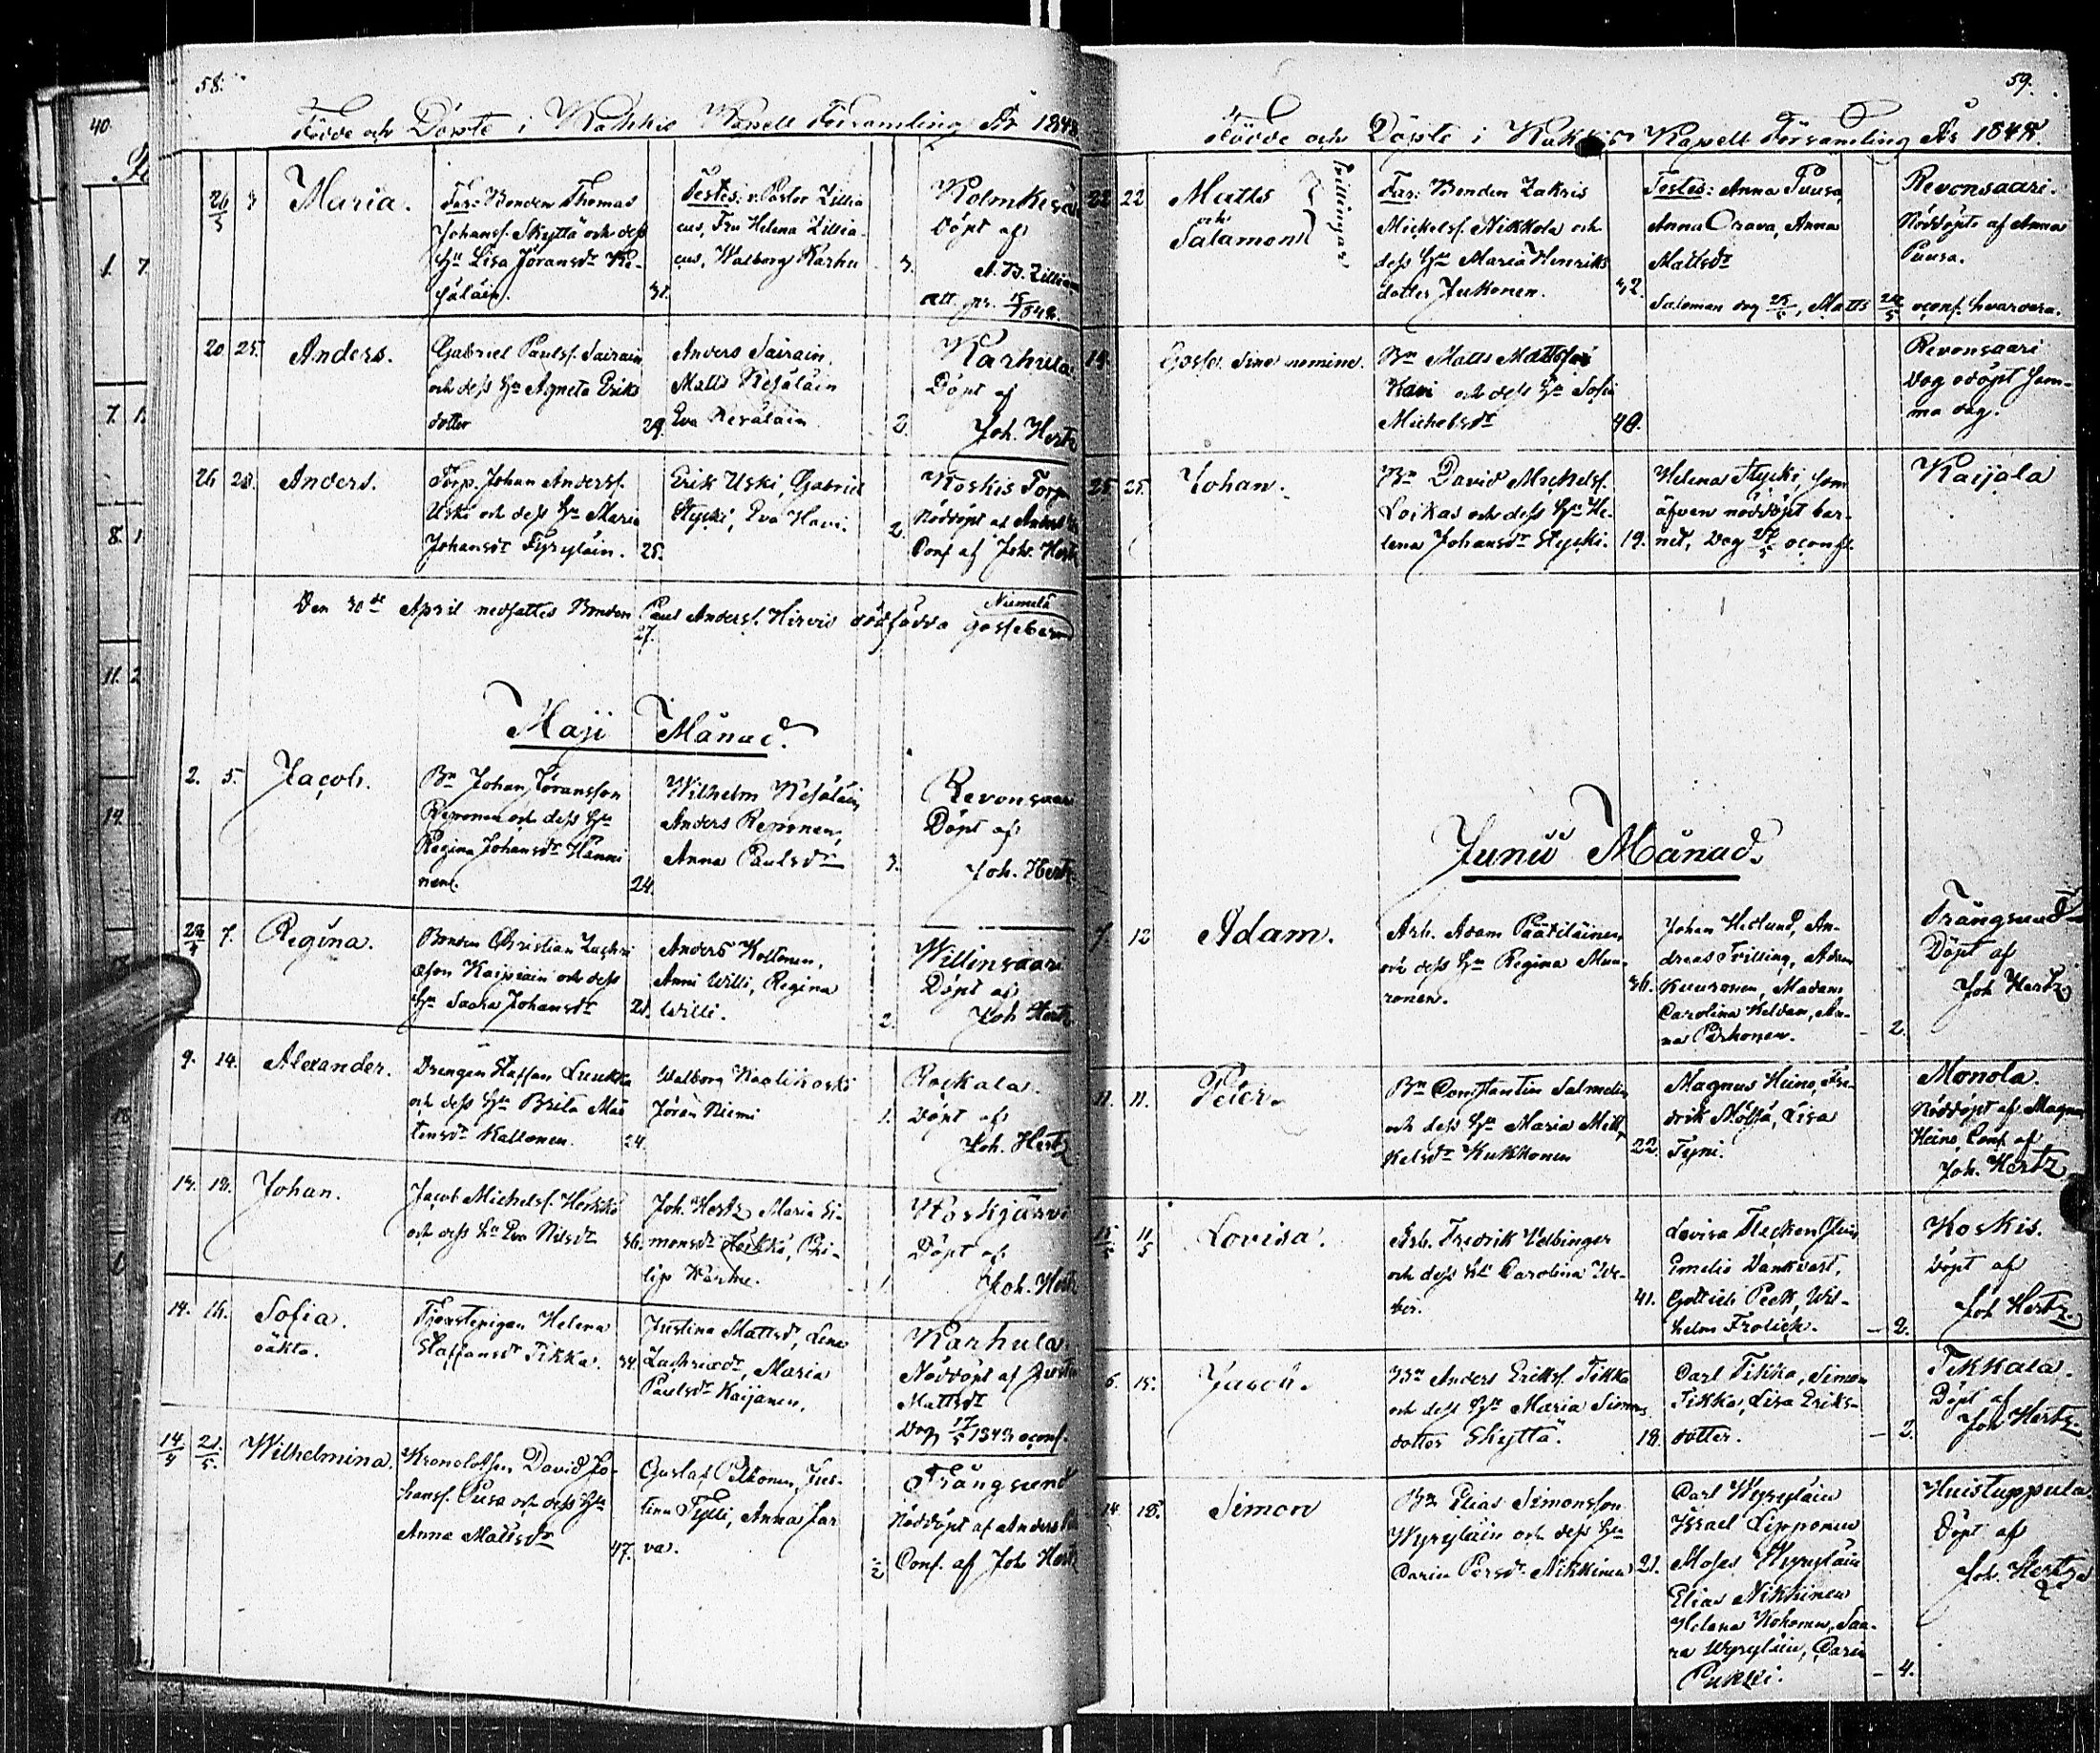 58.
Födde och Döpte i Kakkis Kapell Församling År 1848
26/3
Maria.
Far: Bonden Thomas
Johansf. Skyttä och dess
Hu Lisa Jöransdr
31.
Testes: v. Pastor Zillia
cus, Fru Helena Zillia-
cus, Walborg Karhu
3.
Döpt af
20 25.
Anders.
Gabriel Paulsf. Sairain
och dess Hu Agneta Eriks
dotter
29.
Anders Sairain,
Matts Resäläin
Eva Resäläin
2.
Karhula
Döpt af
Joh. Hertz
26 28.
Anders.
Torp. Johan Andersf.
Uski och dess Hu Maria
Johansdr Tyryläin.
25.
Erik Uski, Gabriel
Stycki, Eva Havi.
2.
Koskis Torp
Nöddöpt af
Conf af Joh. Hertz
Den 30de April nedsattes Bonden Paul Andersf. Hirvis dödfödda gossebarn
Niemelä
27.
Maji Månad.
2. 5.
Jacob.
Bn Johan Jöransson
Reponen och dess Hu
Regina Johansdr Hanni
nen.
24.
Wilhelm Resäläin,
Anders Reponen,
Anna Paulsdr
3.
Revonsaari
Döpt af
Joh. Hertz
28/4 7.
Regina.
Bonden Christian Zachri
asson Kaipiain och dess
Hu Saara Johansdr
21.
Anders Holttinen,
Anni Willi, Regina
Willi.
2.
Willinsaari
Döpt af
Joh Hertz
9. 14.
Alexander.
Drengen Staffan Luukka
och dess Hu Brita Mår
tensdr Kaltonen.
24.
Walborg Naalikoski
Jöran Niemi
1.
Rockala.
Döpt af
Joh. Hertz
Johan.
Jacob Michelsf. Herkkö
och dess Hu Eva Nilsdr
36.
Joh. Hertz, Maria Si-
monsdr Herkkö, Phi-
lip Karhu.
1.
Koskijärvi
Döpt af
Joh. Hertz
14. 16.
Sofia.
oäkta.
Tjenstepigan Helena
Staffansdr Tikka.
34.
Justina Mattsdr, Lena
Zachrisdr, Maria
Paulsdr Kaijanen.
Karhula
Nöddöpt af Justina
Mattsdr
Dog 17/5 1848 oconf.
14/4 21/5.
Wilhelmina.
Kronolotsen David Jo-
hansf. Pusa och dess Hu
Anna Mattsdr
47.
Gustaf Pelkonen, Jus-
tina Tylli, Anna Sar
va.
2
Trångsund
Nöddöpt af Anders
Conf. af Joh Hertz
59.
Födde och Döpte i Kakkis Kapell Församling År 1848.
22 22
Matts
och
Salamon
tvillingar
Far: Bonden Zakris
Mickelsf. Nikkola och
dess Hu Maria Henriks
dotter Jukonen.
32.
Testes: Anna Puusa,
Anna Orava, Anna
Mattsdr
Salomon dog 25/5, Matts 28/5 oconf. hvardera.
Revonsaari.
Nöddöpte af Anna
Puusa.
19.
Gosse. Sine nomine.
Bn Matts Mattsson
Havi och dess Hu Sofia
Michelsdr
40.
Revonsaari
Dog odöpt sam-
ma dag.
25 25.
Johan.
Bn David Michelsf.
Loikas och dess Hu He-
lena Johansdr Stycki.
19.
Helena Stycki, som
äfven nöddöpt bar-
net, Dog 28/5 oconf.
Kaijala
Junii Månad.
7. 12
Adam.
Arb. Adam Päätiläinen
och dess Hu Regina Muu-
ronen.
36.
Johan Hedlund, An-
dreas Trilling, Adam
Kuuronen, Madam
Carolina Helden, An-
na Parkonen.
2.
Trångsund
Döpt af
Joh Hertz
11. 11.
Peter.
Bn Constantin Salmelin
och dess Hu Maria Mich-
kelsdr Kukkonen
22.
Magnus Heino, Fre-
drik Mölsä, Lisa
Tyni.
Monola.
Nöddöpt af Magnus
Heino, Conf. af
Joh. Hertz
11/5
Lovisa.
Arb. Fredrik Uebinger
och dess Hu Carolina We-
ber.
41.
Lovisa Fleckenstein
Emelie Dankvast,
Gottlieb Peck, Wil-
helm Frolick.
2.
Koskis.
Döpt af
Joh Hertz.
6. 15.
Jacob.
Bn Anders Eriksf. Tikka
och dess Hu Maria Simons
dotter Skyttä.
18.
Carl Tikka, Simon
Tikka, Lisa Eriks-
dotter.
2.
Tikkala.
Döpt af
Joh Hertz
14. 18.
Simon
Bn Elias Simonsson
Wyryläin och dess Hu
Carin Persdr Nikkinen
21.
Carl Wyryläin
Israel Lipponen
Moses Wyryläin
Elias Nikkinen
Helena Kokonen, Saa-
ra Wyryläin, Carin
Pukki.
4.
Huistuppula.
Döpt af
Joh. Hertz